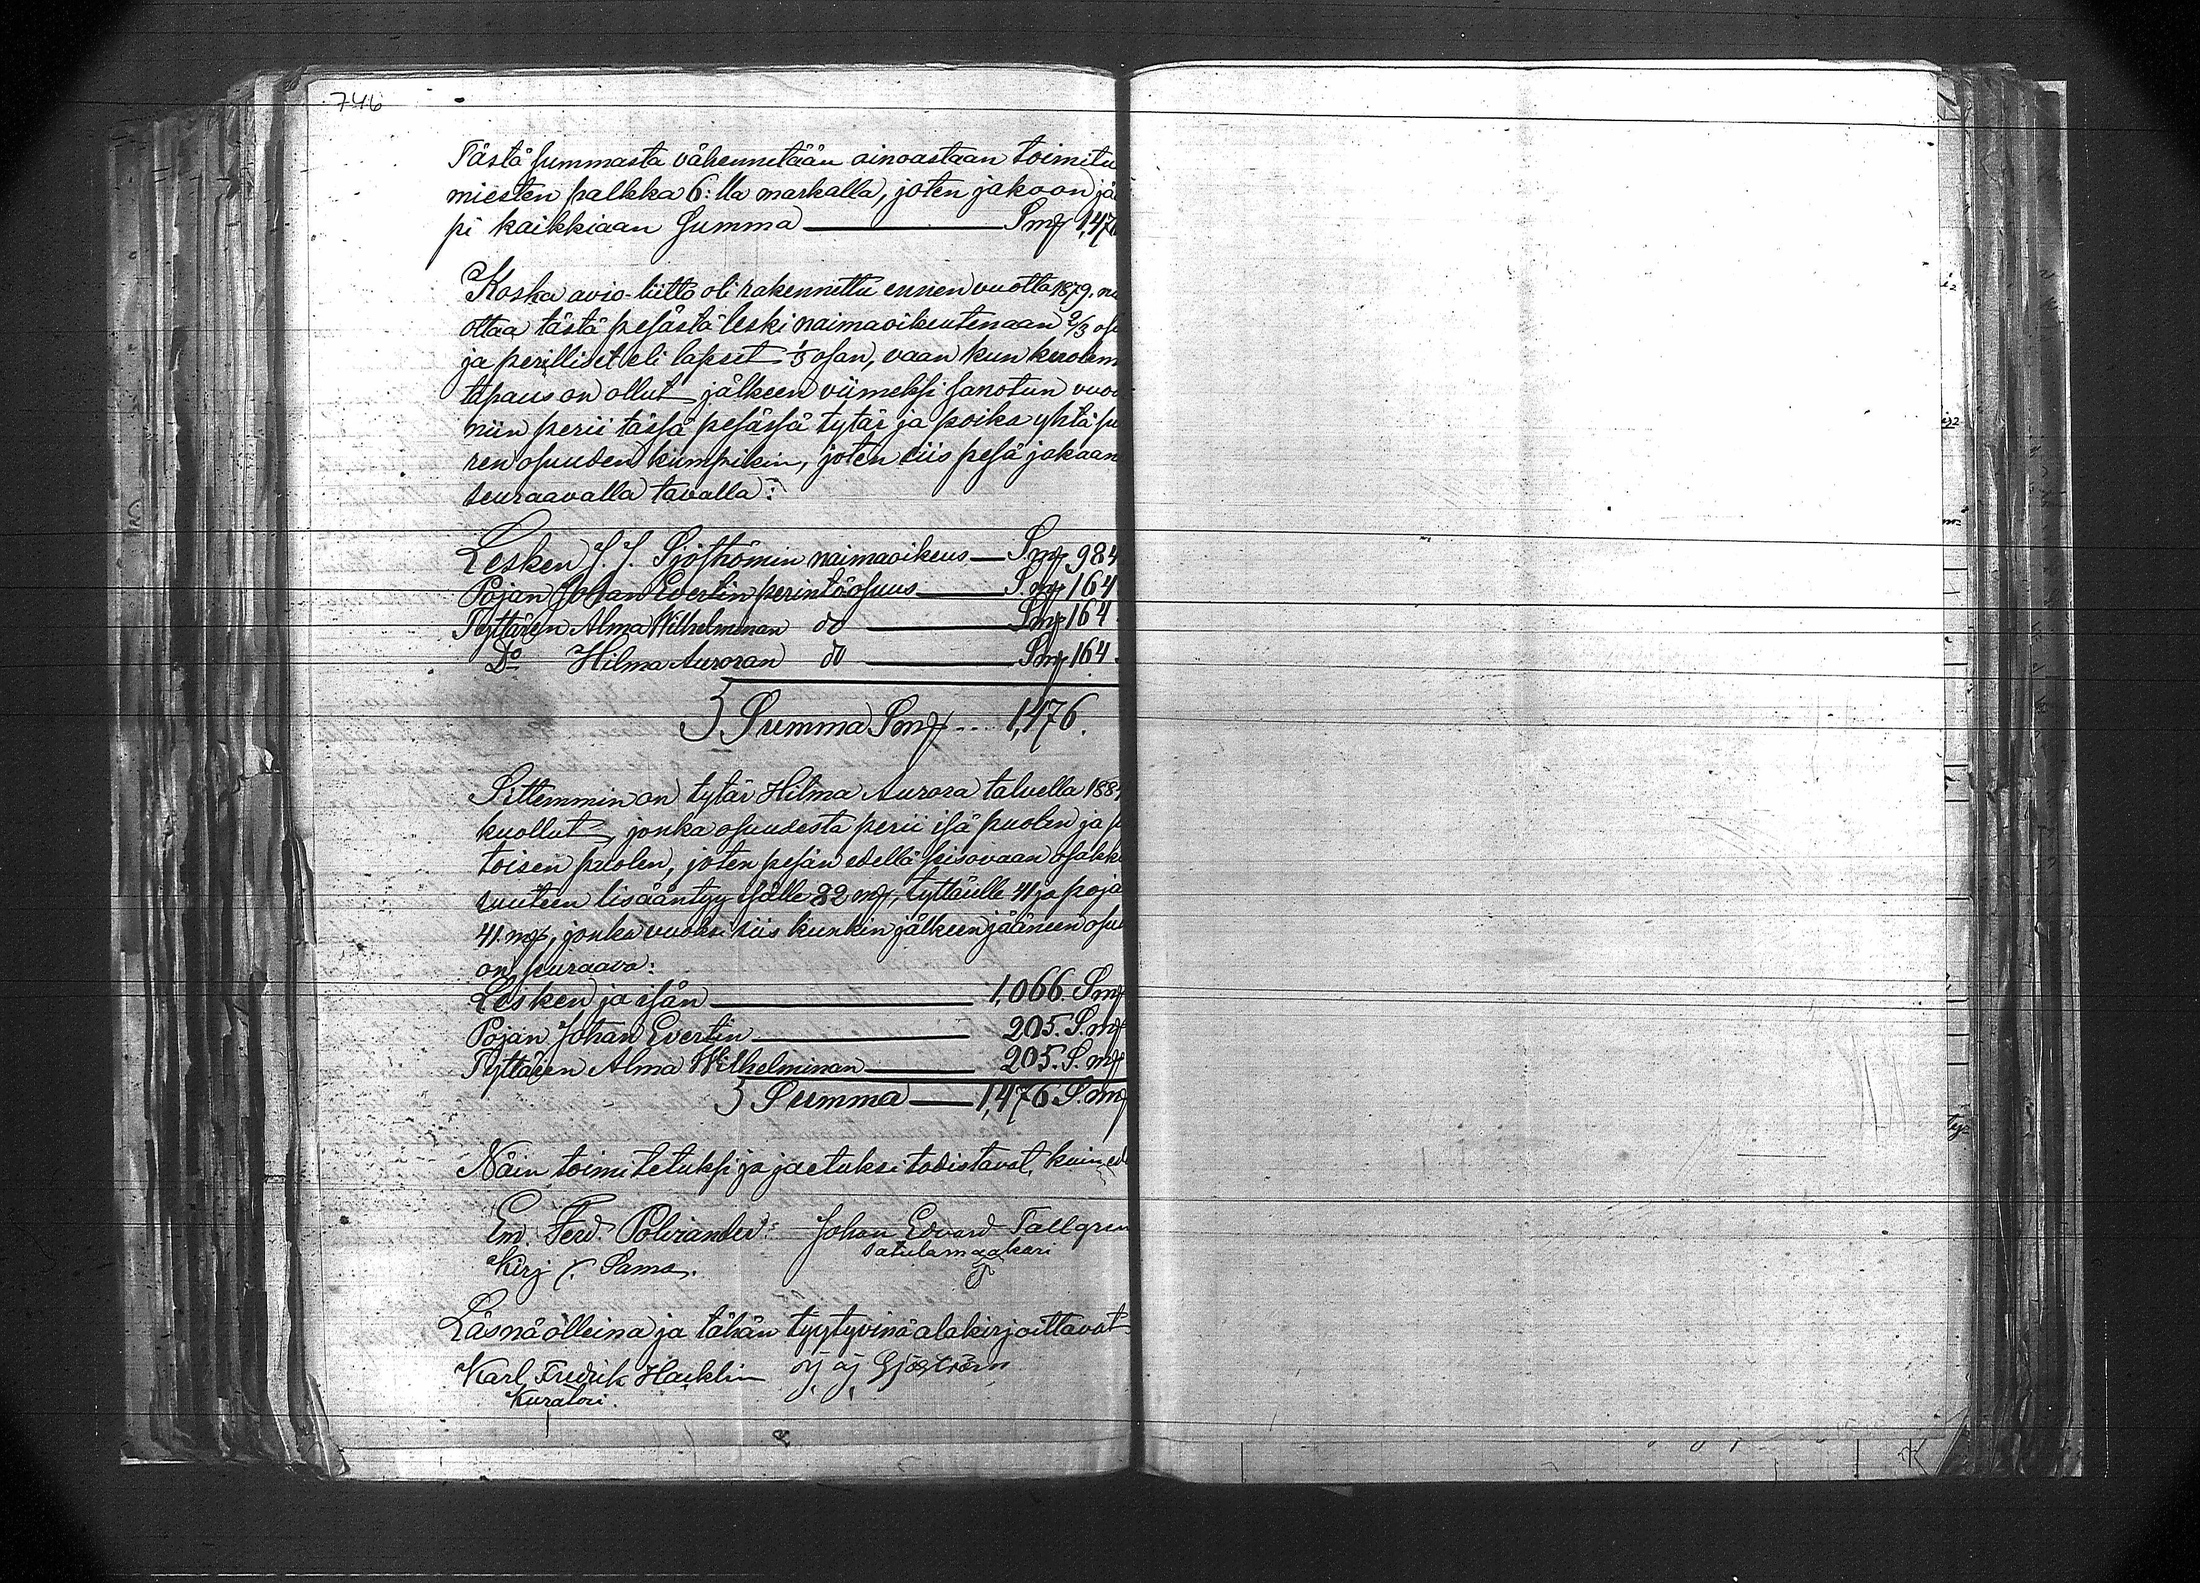 746
Tästä summasta vähennetään ainoastaan toimitu
miesten palkka 6:lla markalla, joten jakoon jä
pi kaikkiaan summa Smk 1,476
Koska avio-liitto oli rakennettu ennen vuotta 1879. ni
ottaa tästä pesästä leski naimaoikeutenaan 2/3 osa
ja perilliset eli lapset 1/3 osan, vaan kun kuolem
tapaus on ollut jälkeen viimeksi sanotun vuod
niin perii tässä pesässä tytär ja poika yhtä su
ren osuuden kumpikin, joten siis pesä jakaan
seuraavalla tavalla:
Lesken J. J. Sjöströmin naimaoikeus Smk 984
Pojan Johan Evertin perintöosuus Smk 164
Tyttären Alma Wilhelminan do Smk 164.
Do Hilma Auroran do Smk 164.
Summa Smk 1,476.
Sittemmin on tytär Hilma Aurora talvella 188
kuollut, jonka osuudesta perii isä puolen ja
toisen puolen, joten pesän edellä osakk
suuteen lisääntyy isälle 82 mk, tyttärelle 41 ja poja
41. mk, jonka vuoksi siis kunkin jälkeen jääneen osu
on seuraava:
Lesken ja isän 1,066. Smk
Pojan Johan Evertin 205. S.mk
Tyttären Alma Wilhelminan 205. S.mk
Summa 1,476 S.mk
Näin toimitetuksi ja jaetuksi todistavat, kuin ed
Em. Ferd. Polviander Johan Edvard Tallgren
Kirj Sama. Satulamaakari
Läsnäolleina ja tähän tyytyvinä alakirjoittavat
Karl Fredrik Hacklin Sjöström
Kuratori.